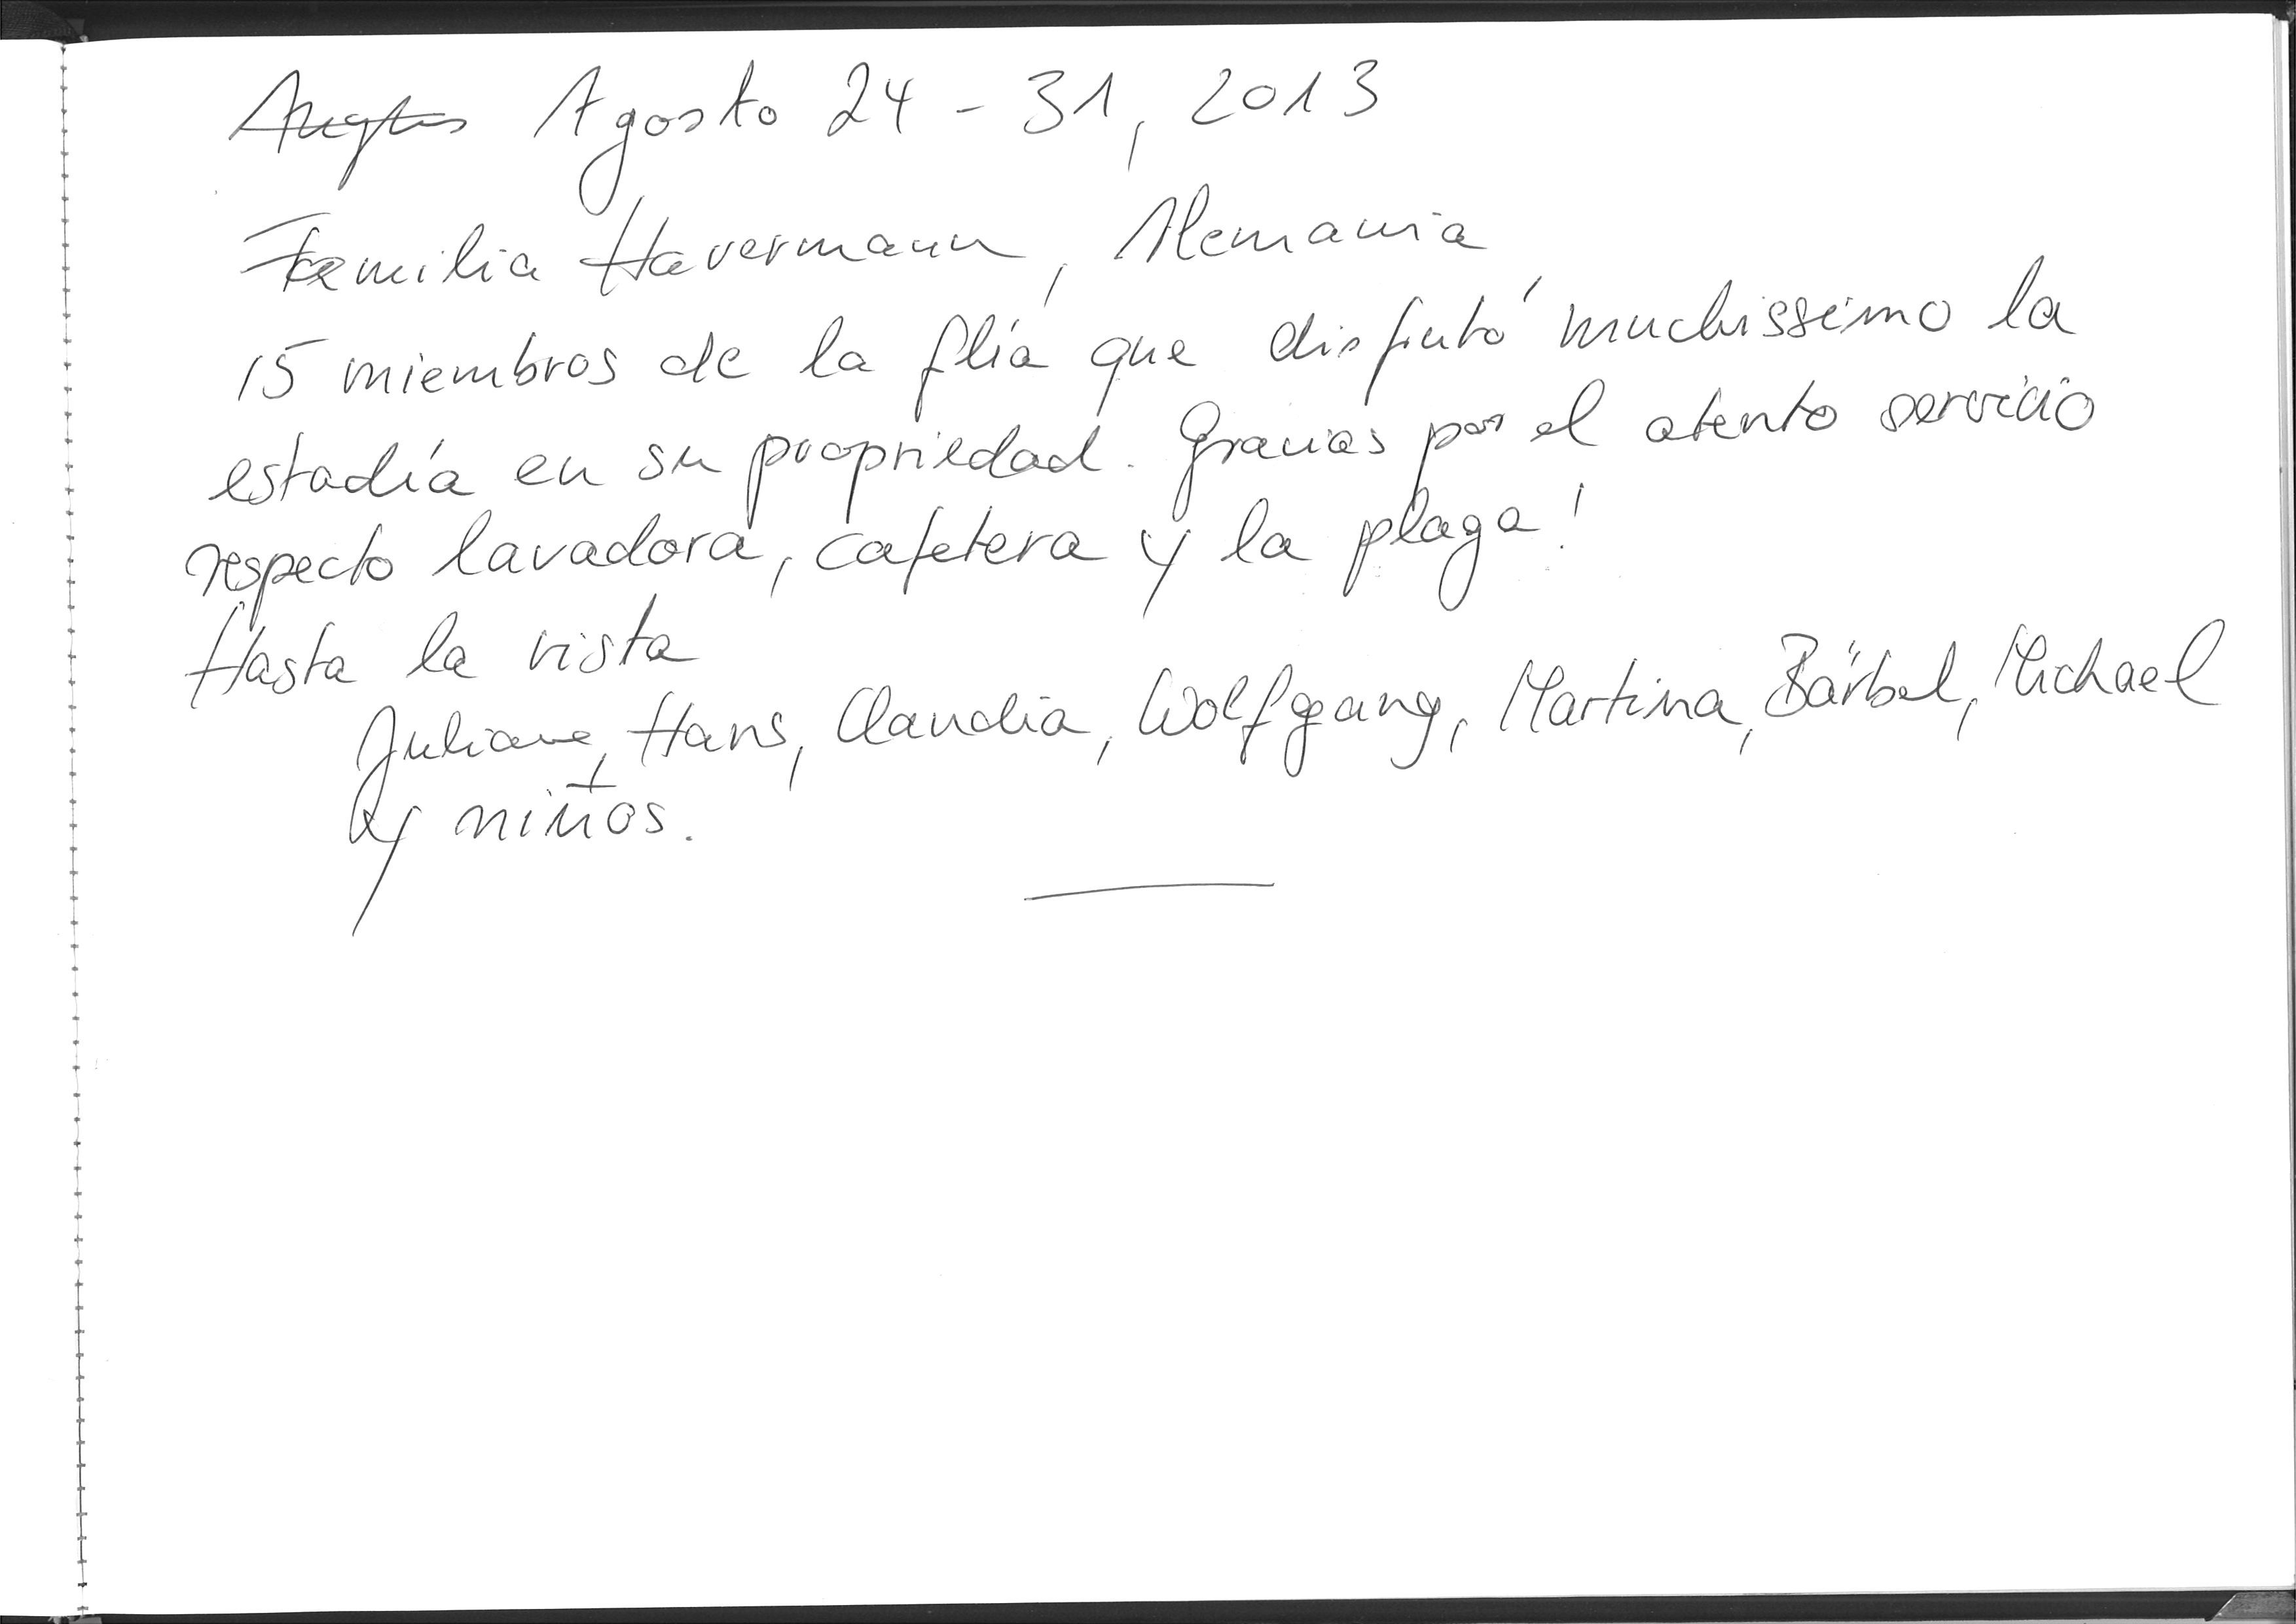 Agosto 24 - 31, 2013
Familia Havermann, Alemania
15 miembros de la flía que disfrutó muchissimo la
estadía en su propriedad. Gracias por el atento servicio
respecto lavadora, cafetera y la playa!
Hasta la vista
Juliane, Hans, Claudia, Wolfgang, Martina, Bärbel, Michael
y niños.